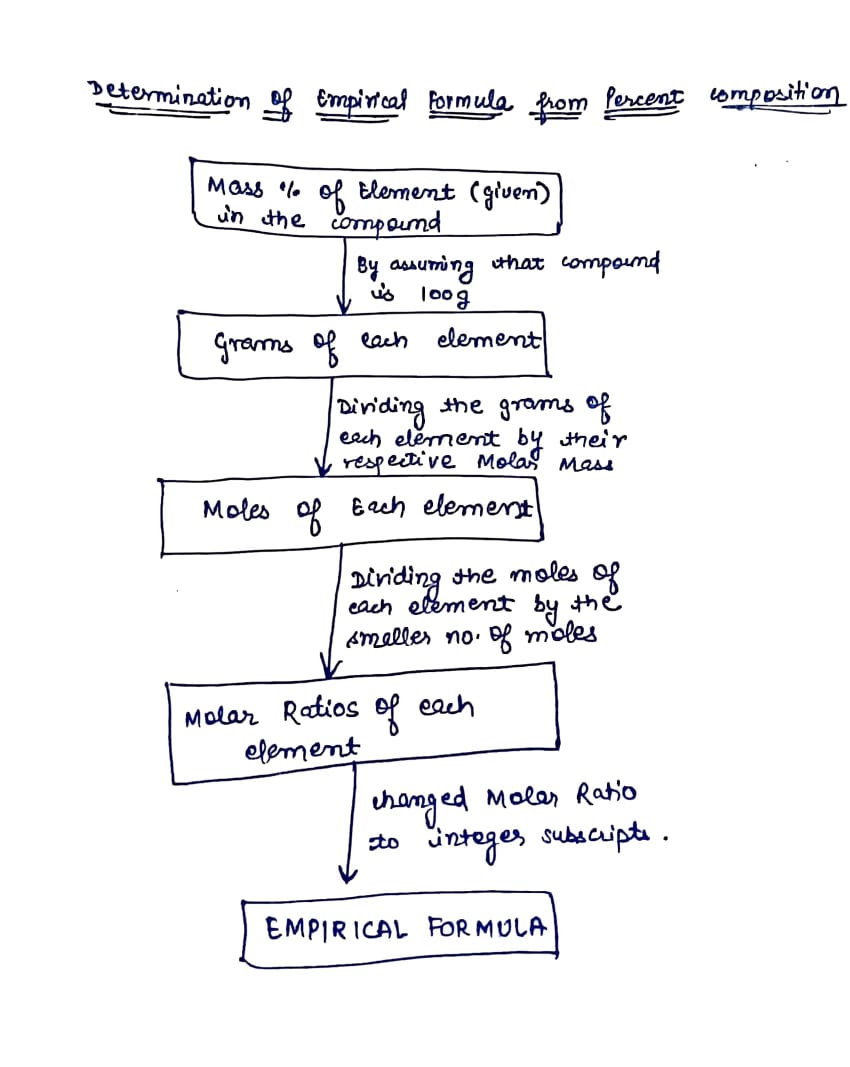 Determination of Empirical Formula from Percent composition
Mass % of Element (given)
in the compound
By assuming that compound
is 100g
Grams of each element
Dividing the grams of
each element by their
respective Molar Mass
Moles of Each element
Dividing the moles of
each element by the
smaller no. of moles
Molar Ratios of each
element
changed Molar Ratio
to integer subscripts.
EMPIRICAL FORMULA